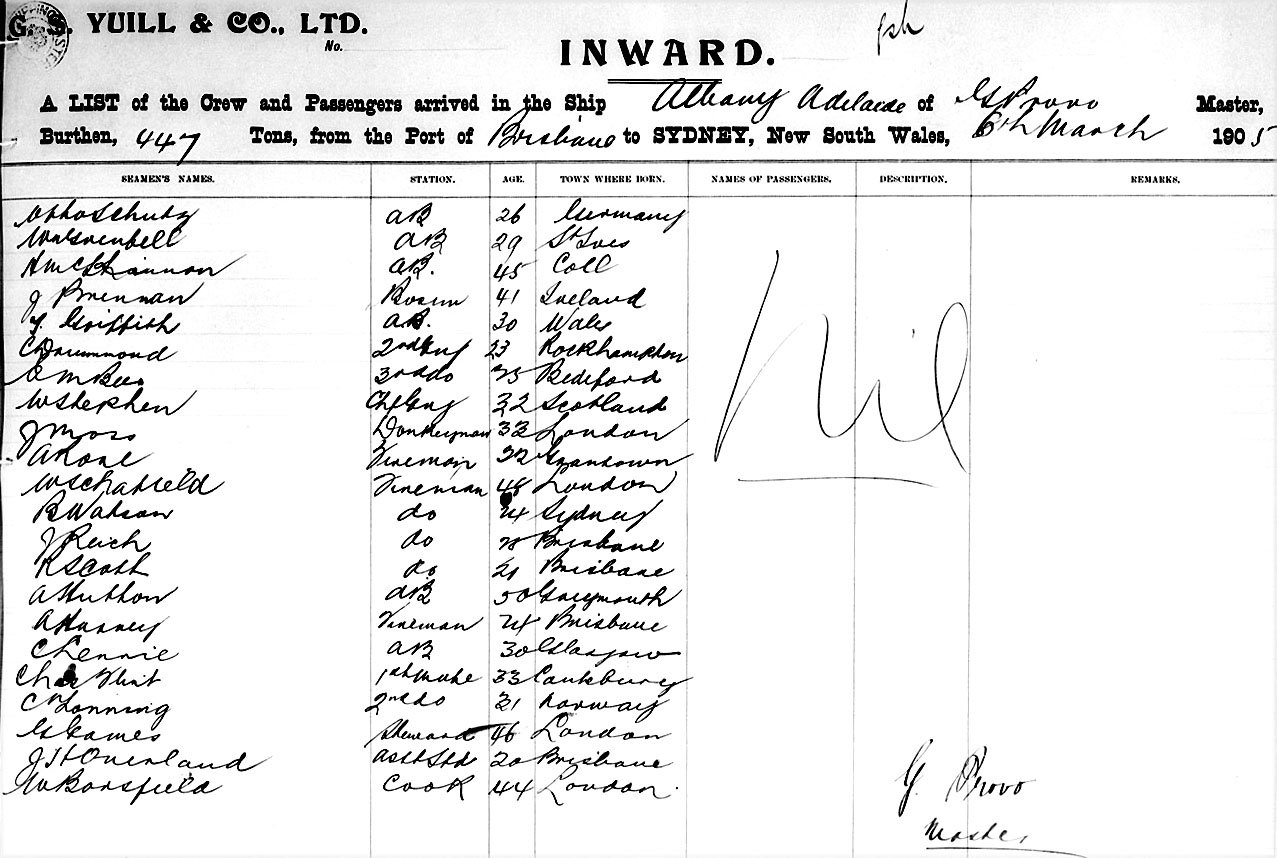 G. S. YUILL & CO., LTD.
No.
INWARD.
A LIST of the Crew and Passengers arrived in the Ship Albany Adelaide of G Provo Master,
Burthen, 447 Tons, from the Port of Brisbane to SYDNEY, New South Wales, 6th March 1905
SEAMEN'S NAMES. STATION. AGE. TOWN WHERE BORN. NAMES OF PASSENGERS. DESCRIPTION. REMARKS.
Otto Schutz AB 26 Germany
Wm Grenbell AB 29 St Ives
H McKinnon AB. 45 Coll
J Brennan Bosun 41 Ireland
Griffith AB. 30 Wales
C Drummond 2nd Eng 23 Rockhampton
3rd do Bedeford
W Stephen Chf Eng 32 Scotland
J Moss Donkeyman 33 London
A Rose Fireman 32 Grantown
W Schatfield Fireman 48 London
B Watson do 24 Sydney
J Reich do 28 Brisbane
R Scott do 21 Brisbane
A Hutton AB 50 Greymouth
A Harvey Fireman 24 Brisbane
C Rennie AB 30 Glasgow
Chas Flint 1st Mate 33 Canterbury
C Lonning 2nd do 31 Norway
G Eames Steward 46 London
J H Overland Asst Std 20 Brisbane
W Barsfield Cook 44 London.
Nil
G. Provo
Master